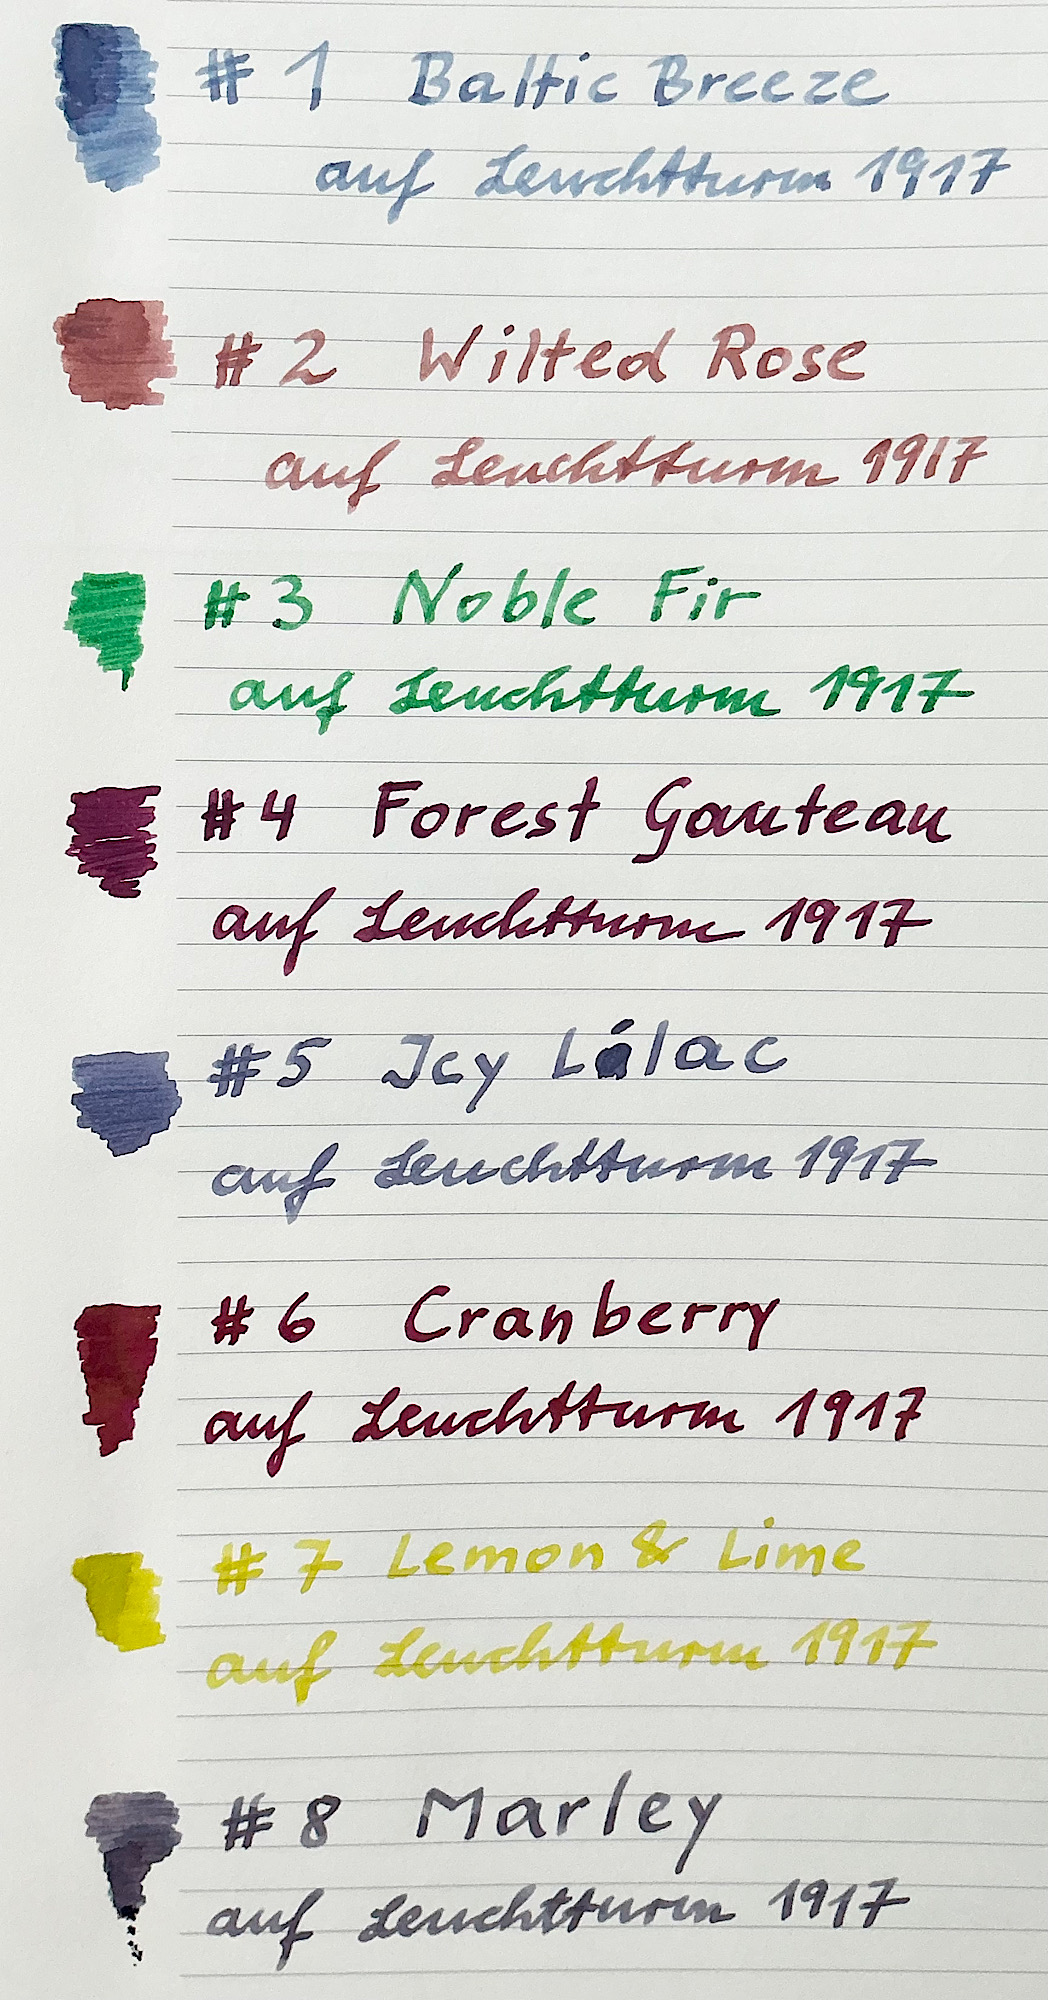 # 1 Baltic Breeze
auf Leuchtturm 1917
# 2 Wilted Rose
auf Leuchtturm 1917
# 3 Noble Fir
auf Leuchtturm 1917
# 4 Forest Gauteau
auf Leuchtturm 1917
# 5 Icy Lilac
auf Leuchtturm 1917
# 6 Cranberry
auf Leuchtturm 1917
# 7 Lemon & Lime
auf Leuchtturm 1917
# 8 Marley
auf Leuchtturm 1917